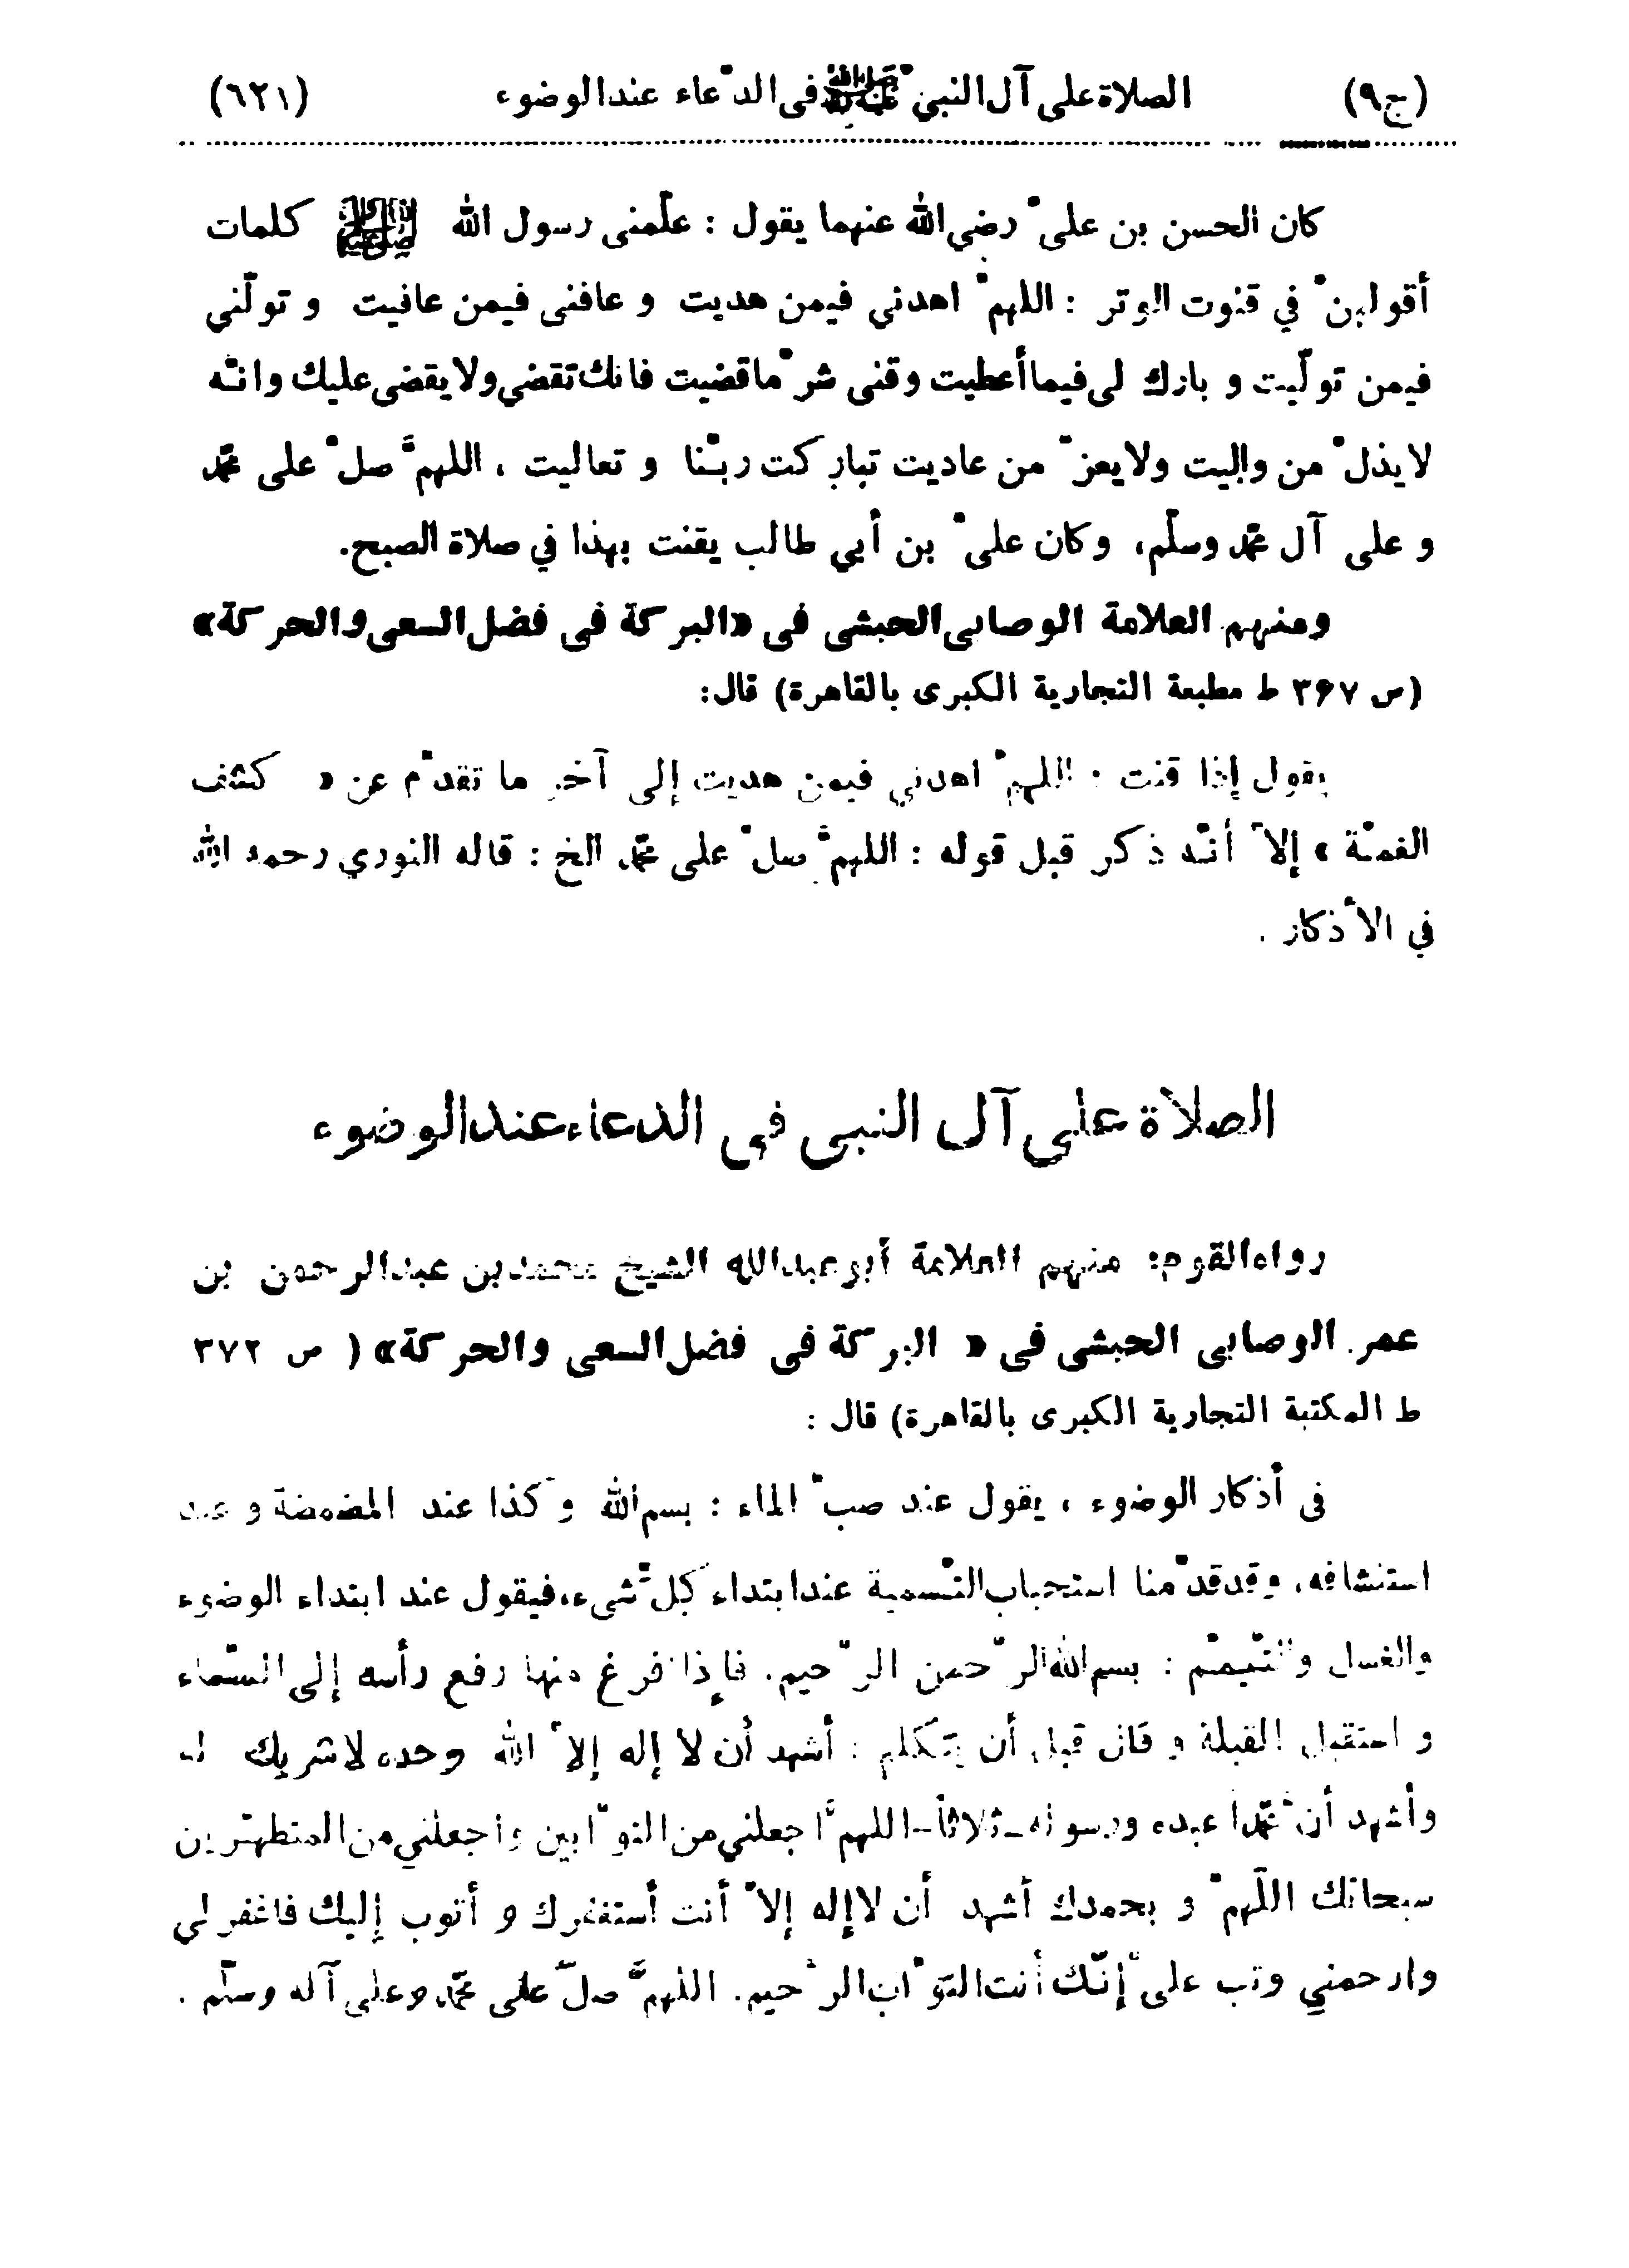 (ج٩) الصلاة على آل النبيّ ﷺ فى الدّعاء عند الوضوء (٦٢١)
كان الحسن بن علىّ رضي الله عنهما يقول : علّمنى رسول الله ﷺ كلمات
أقولهنّ في قنوت الوتر : اللهمّ اهدني فيمن هديت و عافنى فيمن عافيت و تولّني
فيمن تولّيت و بارك لى فيما أعطيت وقنى شرّ ما قضيت فانك تقضي ولا يقضى عليك وانّه
لا يذلّ من واليت ولا يعزّ من عاديت تباركت ربّنا و تعاليت ، اللهمَّ صلّ على محمّد
و على آل محمّد وسلّم، وكان علىّ بن أبي طالب يقنت بهذا في صلاة الصبح.
ومنهم العلامة الوصابى الحبشى فى «البركة فى فضل السعى والحركة»
(ص ٣۶٧ ط مطبعة التجارية الكبرى بالقاهرة) قال:
يقول إذا قنت : اللهمّ اهدني فيمن هديت إلى آخر ما تقدّم عن « كشف
الغمّة » إلاّ أنّه ذكر قبل قوله : اللهمَّ صلّ على محمّد الخ : قاله النوري رحمه الله
في الأذكار .
الصلاة على آل النبى فى الدعاء عند الوضوء
رواه القوم: منهم العلامة أبو عبدالله الشيخ محمد بن عبدالرحمن بن
عمر الوصابى الحبشى فى « البركة فى فضل السعى والحركة» ( ص ٣٧٢
ط المكتبة التجارية الكبرى بالقاهرة) قال :
فى أذكار الوضوء ، يقول عند صبّ الماء : بسم الله وكذا عند المضمضة و عند
استنشاقه، وقد قدّمنا استحباب التّسمية عند ابتداء كلّ شىء، فيقول عند ابتداء الوضوء
والغسل والتّيمّم : بسم الله الرّحمن الرّحيم. فإذا فرغ منها رفع رأسه إلى السّماء
و استقبل القبلة و قال قبل أن يتكلم : أشهد أن لا إله إلاّ الله وحده لا شريك له
وأشهد أنّ محمّداً عبده ورسوله ـ ثلاثاً ـ اللهمَّ اجعلني من التوّابين واجعلني من المتطهّرين
سبحانك اللّهمّ و بحمدك أشهد أن لا إله إلاّ أنت أستغفرك و أتوب إليك فاغفر لي
وارحمني وتب علىّ إنّك أنت التوّاب الرّحيم. اللهمَّ صلّ على محمّد وعلى آله وسلّم .